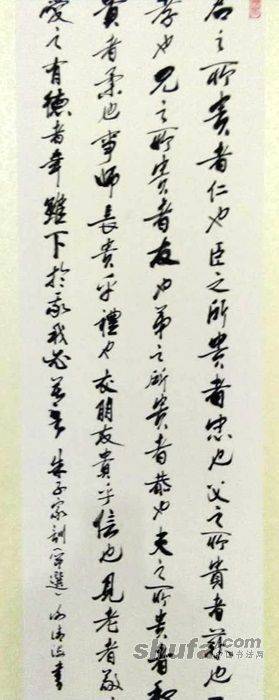 君之所貴者仁也臣之所貴者忠也父之所貴者慈也
孝也兄之所貴者友也弟之所貴者恭也夫之所貴者和
貴者柔也事師長貴乎禮也交朋友貴乎信也見老者敬
愛之有德者年雖下於我我必尊之 朱子家訓(節選) 書
shufa.com
中国书法网